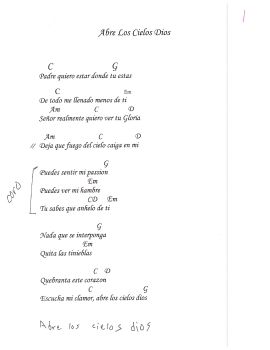 Abre Los Cielos Dios
C G
Padre quiero estar donde tu estas
C Em
De todo me llenado menos de ti
Am C D
Señor realmente quiero ver tu Gloria
Am C D
// Deja que fuego del cielo caiga en mi
G
Puedes sentir mi passion
Em
Puedes ver mi hambre
CD Em
Tu sabes que anhelo de ti
coro
G
Nada que se interponga
Em
Quita las tinieblas
C D
Quebranta este corazon
C G
Escucha mi clamor, abre los cielos dios
Abre los cielos dios